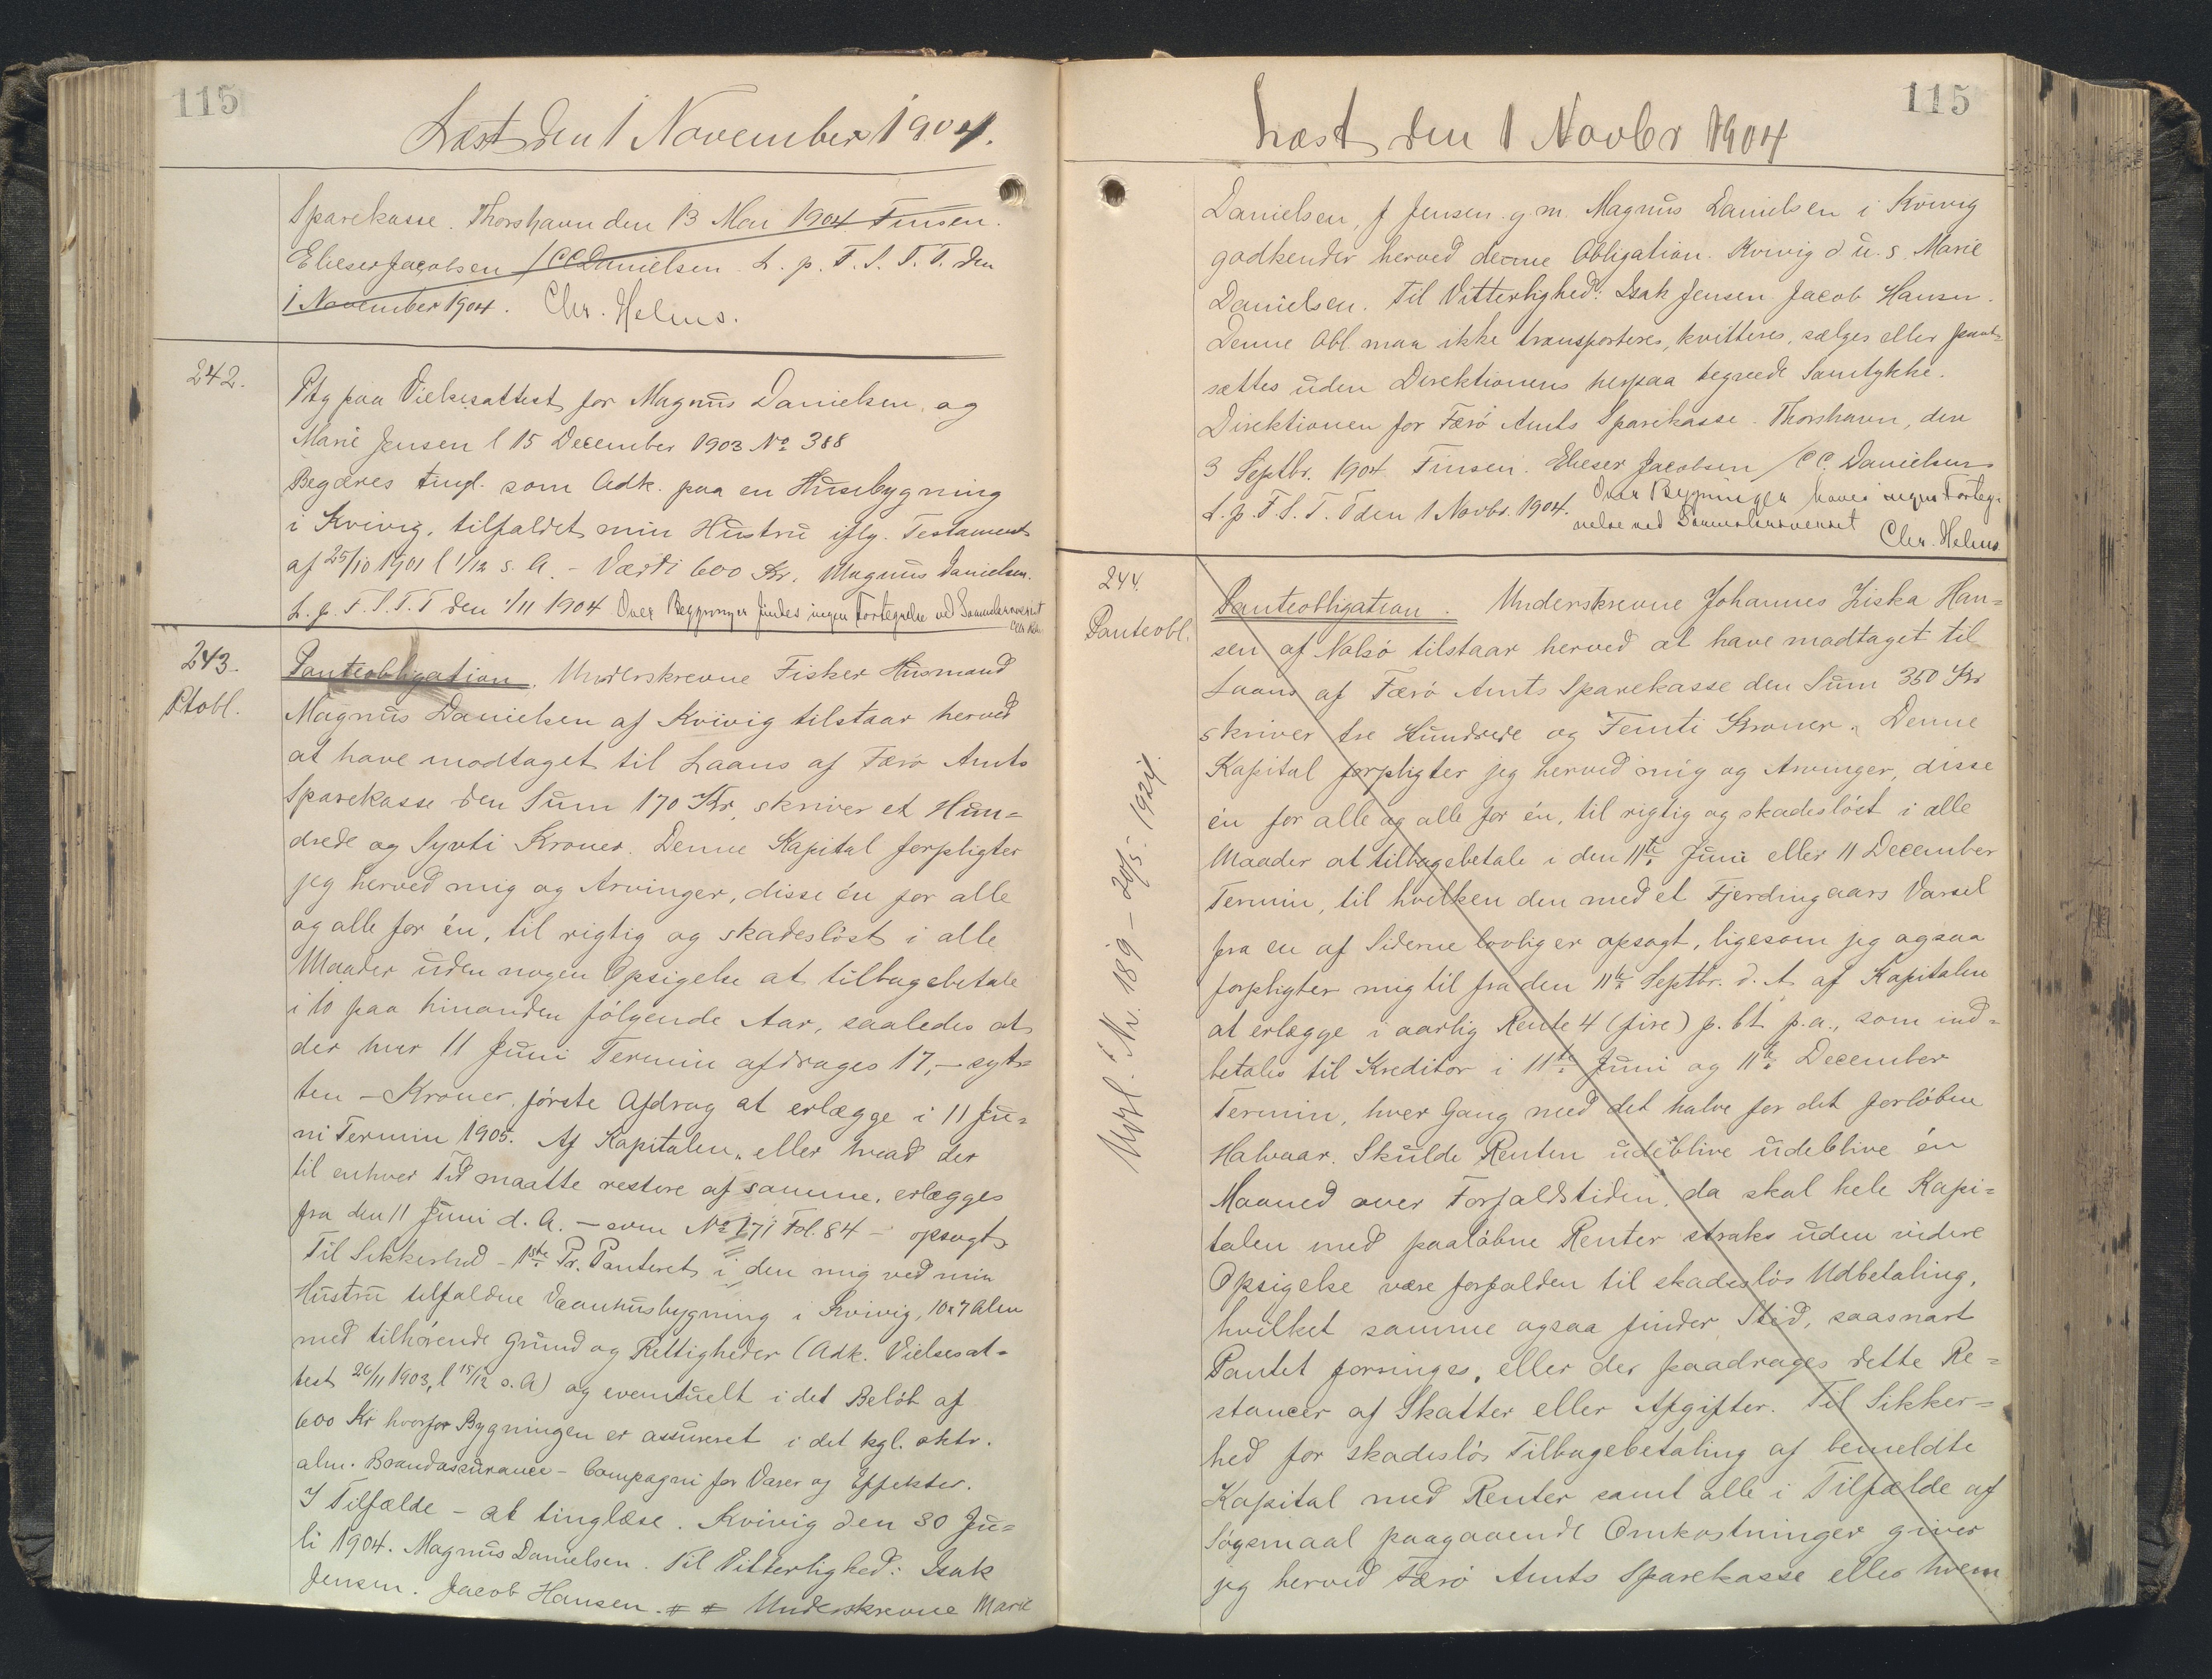 115
Læst den 1 November 1904.
Sparekasse. Thorshavn den 13 Mai 1904 Finsen.
Elieser Jacobsen / CC Danielsen. L. p. F. S. T. T. den
1 November 1904. Chr. Helms.
242.
Ptg paa Vielsesattest for Magnus Danielsen og
Marie Jensen l 15 December 1903 No 388
Begæres tingl. som Adk. paa en Husebygning
i Kvivig, tilfaldet min Hustru iflg. Testament
af 25/10 1901 l 1/12 s. A. - Værdi 600 Kr. Magnus Danielsen.
L. p. F. S. T. T den 1/11 1904 Over Bygninger findes ingen Fortegnelse ved
243.
Ptobl.
Panteobligation. Underskrevne Fisker Husmand
Magnus Danielsen af Kvivig tilstaar herved
at have modtaget til Laans af Færø Amts
Sparekasse den Sum 170 Kr, skriver et Hun=
drede og Syvti Kroner. Denne Kapital forpligter
jeg herved mig og Arvinger, disse én for alle
og alle for én, til rigtig og skadesløst i alle
Maader uden nogen Opsigelse at tilbagebetale
i 10 paa hinanden følgende Aar, saaledes at
der hver 11 Juni Termin afdrages 17,- syt=
ten - Kroner, første Afdrag at erlægge i 11 Ju=
ni Termin 1905. Af Kapitalen, eller hvad der
til enhver Tid maatte restere af samme, erlægges
fra den 11 Juni d. A. - som No 171 Fol. 84 - opsagt
Til Sikkerhed - 1ste Pr. Panteret i den mig ved min
Hustru tilfaldne Vaanhusbygning i Kvivig, 10 x 7 Alen
med tilhørende Grund og Rettigheder (Adk. Vielsesat=
test 26/11 1903, l 15/12 s. A) og eventuelt i det Beløb af
600 Kr hvorfor Bygningen er assureret i det kgl. oktr.
alm. Brandassurance-Compagni for Varer og Effekter.
I Tilfælde - at tinglæse. Kvivig den 30 Ju=
li 1904. Magnus Danielsen. Til Vitterlighed: Isak
Jensen. Jacob Hansen. # # Underskrevne Marie
115
Læst den 1 Novbr 1904
Danielsen, f Jensen g. m. Magnus Danielsen i Kvivig
godkender herved denne Obligation. Kvivig d. u. s. Marie
Danielsen. Til Vitterlighed: Isak Jensen Jacob Hansen.
Denne Obl. maa ikke transporteres, kvitteres, sælges eller pant=
sættes uden Direktionens herpaa tegnede Samtykke.
Direktionen for Færø Amts Sparekasse. Thorshavn, den
3 Septbr. 1904 Finsen. Elieser Jacobsen / C C. Danielsen
L. p. F. S. T. T den 1 Novbr. 1904. Over Bygningen haves ingen Forteg=
nelse ved Chr. Helms
244.
Panteobl.
Panteobligation. Underskrevne Johannes Ziska Han=
sen af Nolsø tilstaar herved at have modtaget til
Laans af Færø Amts Sparekasse den Sum 350 Kr
skriver tre Hundrede og Femti Kroner. Denne
Kapital forpligter jeg herved mig og Arvinger, disse
én for alle og alle for én, til rigtig og skadesløst i alle
Maader at tilbagebetale i den 11te Juni eller 11 December
Termin, til hvilken den med et Fjerdingaars Varsel
fra en af Siderne lovlig er opsagt, ligesom jeg ogsaa
forpligter mig til fra den 11te Septbr. d. A. af Kapitalen
at erlægge i aarlig Rente 4 (fire) p. Ct. p. a., som ind=
betales til Kreditor i 11te Juni og 11te December
Termin, hver Gang med det halve for det forløbne
Halvaar. Skulde Renten udeblive udeblive én
Maaned over Forfaldstiden, da skal hele Kapi=
talen med paaløbne Renter straks uden videre
Opsigelse være forfalden til skadesløs Udbetaling,
hvilket samme ogsaa finder Sted, saasnart
Pantet forringes, eller der paadrages dette Re=
stancer af Skatter eller Afgifter. Til Sikker=
hed for skadesløs Tilbagebetaling af bemeldte
Kapital med Renter samt alle i Tilfælde af
Søgsmaal paagaaende Omkostninger giver
jeg herved Færø Amts Sparekasse eller hvem
i Nr. 189 - 1924.